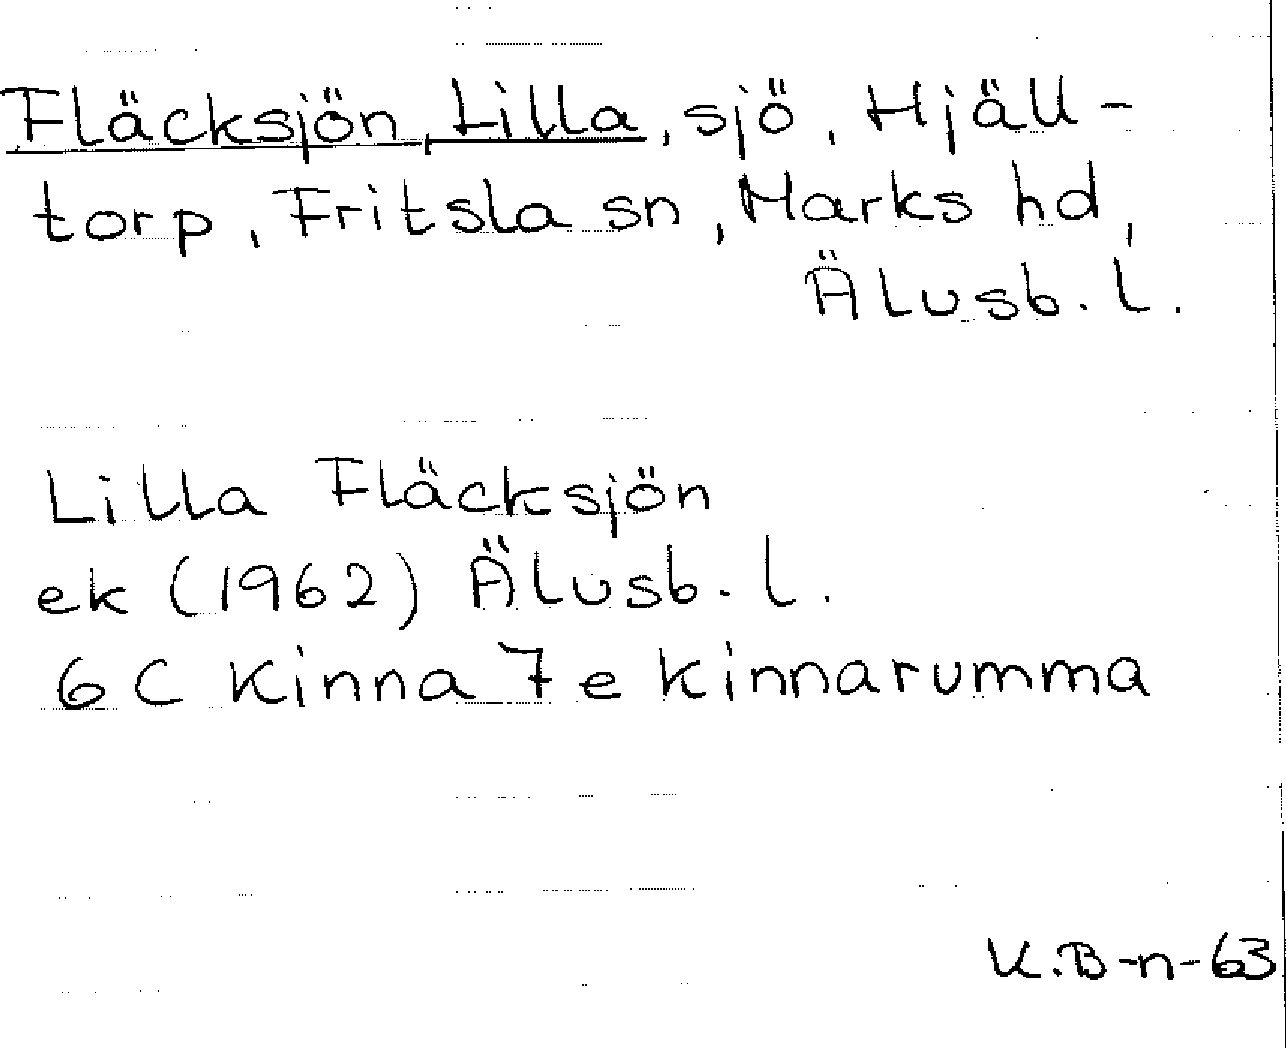 Fläcksjön, Lilla, sjö, Hjäll-
torp, Fritsla sn, Marks hd,
Älvsb. l.
Lilla Fläcksjön
ek (1962) Älvsb. l.
6 C Kinna 7 e Kinnarumma
K.B-n-63